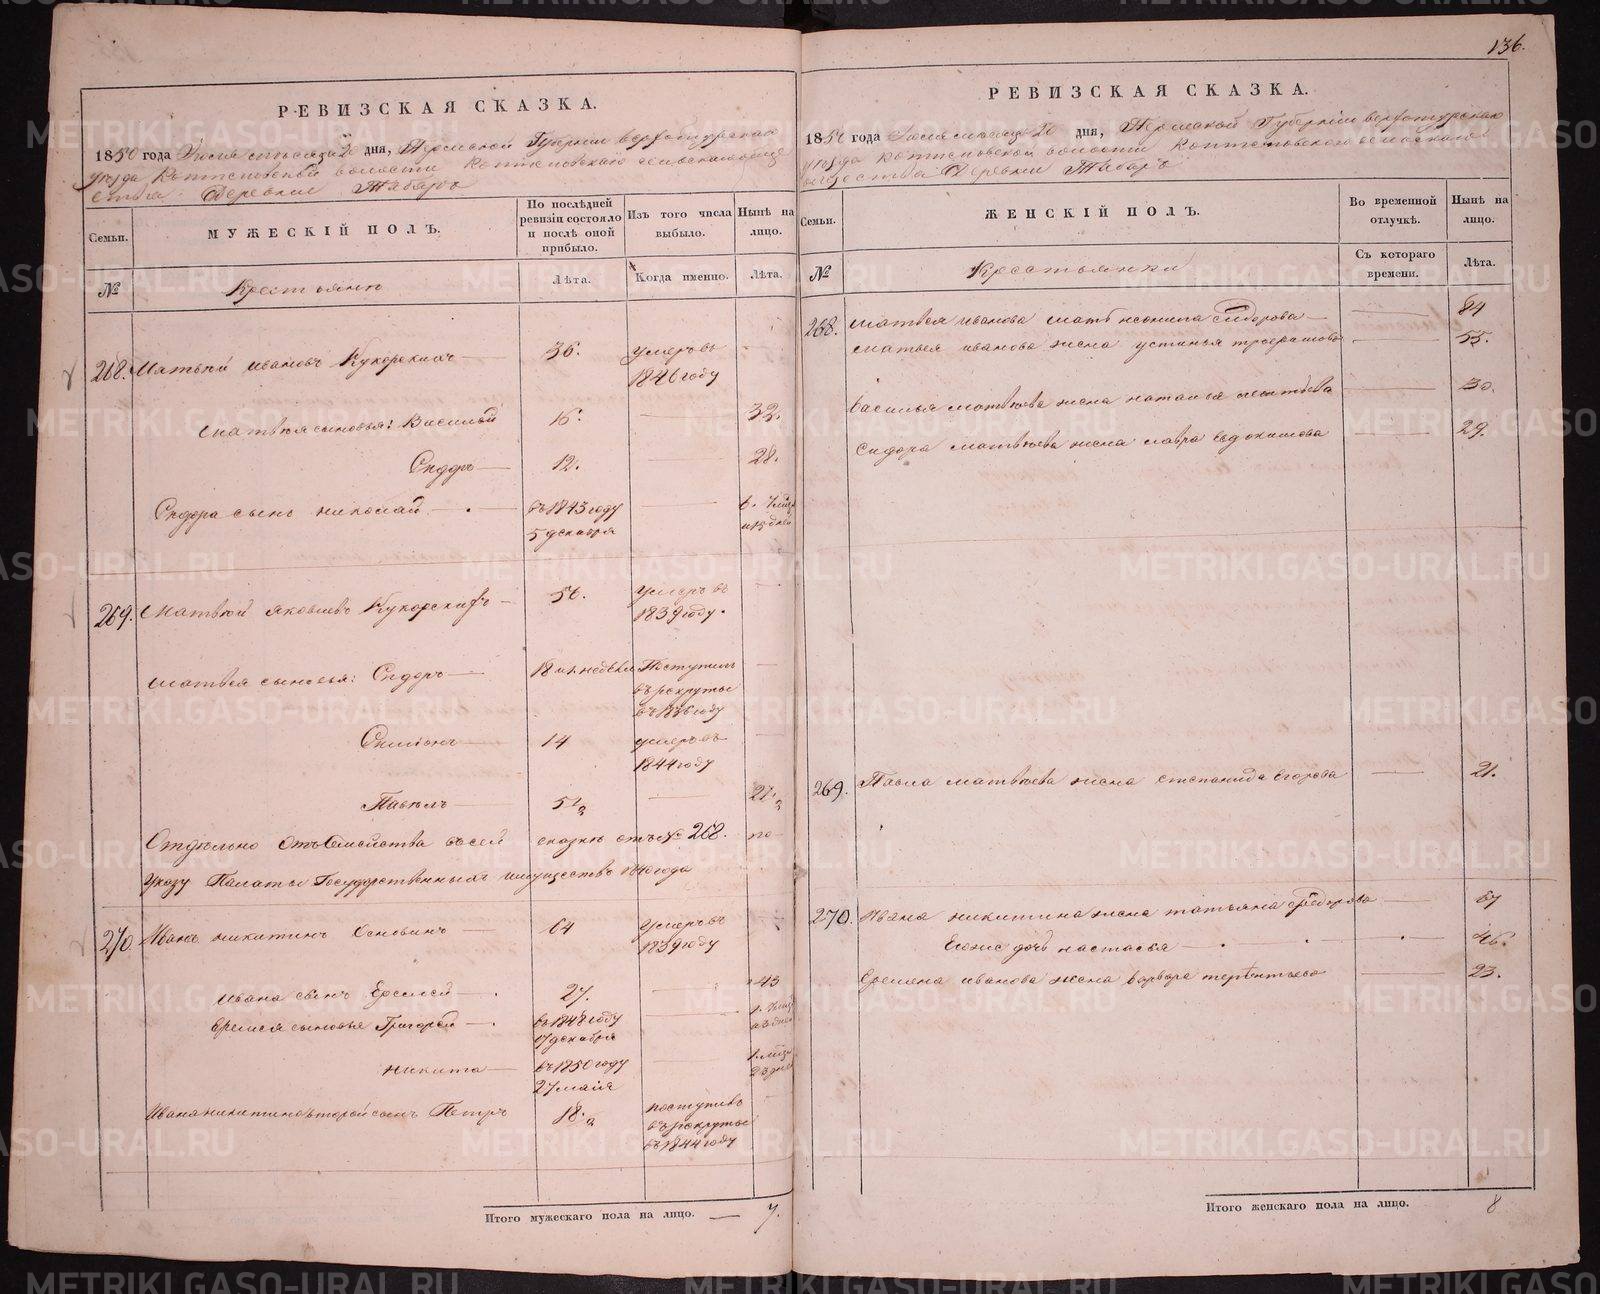 136.
РЕВИЗСКАЯ СКАЗКА.
1850 года Июля месяца 20 дня, Пермской Губернии верхотурскаго
уезда Коптеловской волости Коптеловскаго сельскаго обще
ства Деревни Табаръ
Семьи.
МУЖЕСКІЙ ПОЛЪ.
По послѣдней ревизіи состояло и послѣ оной прибыло.
Изъ того числа выбыло.
Нынѣ на лицо.
№
Крестьяне
Лѣта.
Когда именно.
Лѣта.
268. Матвѣй ивановъ Кукарскихъ 36. умеръ въ
1846 году
Матвѣя сыновья: Василий 16. 32.
Сидоръ 12. 28.
Сидора сынъ николай въ 1843 году
5 декабря
269. Матвѣй яковлевъ Кукарскихъ 56. умеръ въ
1839 году.
Матвея сыновья: Сидоръ 18 Поступилъ
въ рекруты
въ 1836 году
Симионъ 14 умеръ въ
1844 году
Павелъ 5½ 21½
Отдѣльно отъ Семейства въ сей сказкѣ отъ № 268. по
Указу Палаты Государственныхъ имуществъ 1840 года
270. Иванъ никитинъ Основинъ 64 умеръ въ
1839 году
Ивана сынъ Еремей 27. 43
Еремея сыновья Григорей въ 1848 году
17 декабря
никита въ 1850 году
27 маія
Ивана никитина второй сынъ Петръ 18.½ поступилъ
въ рекруты
въ 1844 году
Итого мужескаго пола на лицо. 7.
РЕВИЗСКАЯ СКАЗКА.
1850 года Июля месяца 20 дня, Пермской Губернии верхотурскаго
уезда Коптеловской волости Коптеловскаго сельскаго
общества Деревни Табаръ
Семьи.
ЖЕНСКІЙ ПОЛЪ.
Во временной отлучкѣ.
Нынѣ на лицо.
№
Крестьянки
Съ котораго времени.
Лѣта.
268. Матвея иванова мать неонила Сидорова 84
Матвея иванова жена устинья 55.
василья матвеева жена наталья леонтьева 30
Сидора матвѣева жена мавра Евдокимова 29.
269. Павла матвѣева жена степанида Егорова 21.
270. Ивана никитина жена татьяна Сидорова 67
Ево же дочь настасья 46.
Еремея иванова жена варвара терентьева 23.
Итого женскаго пола на лицо. 8
METRIKI.GASO-URAL.RU